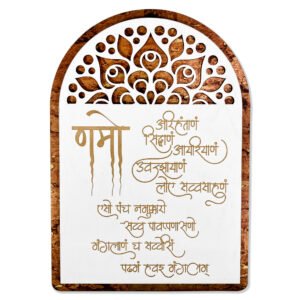 णमो
अरिहंताणं
सिद्धाणं
आयरियाणं
उवज्झायाणं
लोए सव्वसाहूणं
एसो पंच नमुक्कारो
सव्व पावप्पणासणो
मंगलाणं च सव्वेसिं
पढमं हवइ मंगलम्